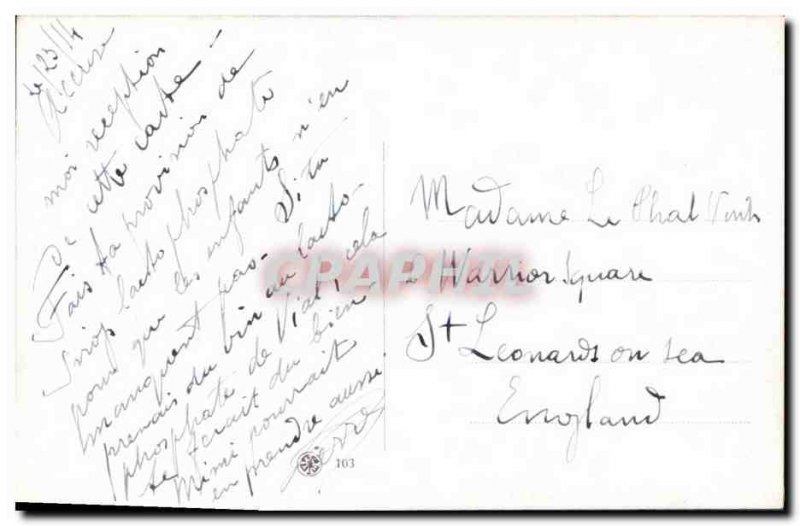 le 23/14
Accuse
moi reception
de cette carte -
Fais ta provision de
Sirop lacto phosphate
pour que les enfants n'en
manquent pas - Si tu
prenais du vin au lacto-
phosphate de Vial, cela
te ferait du bien.
Mimi pourrait
en prendre aussi.
Pierre
CPAPHIL
103
Madame Le
Warrior Square
St Leonards on sea
England